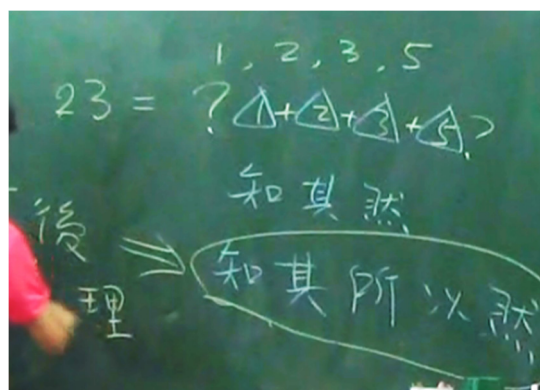 1, 2, 3, 5
23 = ? 1 + 2 + 3 + 5 ?
知其然
後 ⇒ 知其所以然
理